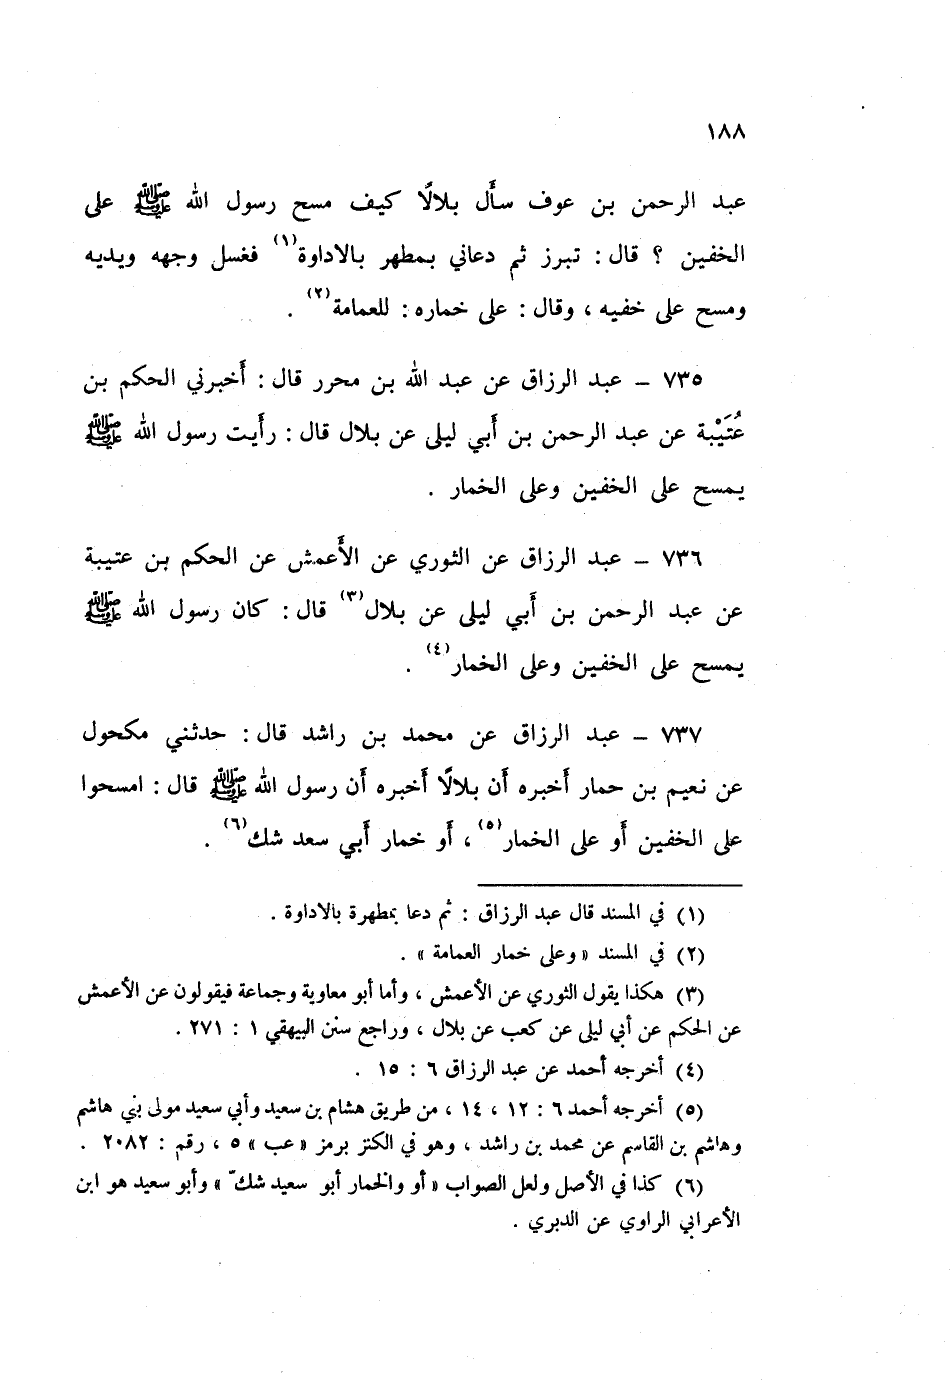 ١٨٨
عبد الرحمن بن عوف سأَل بلالًا كيف مسح رسول الله ﷺ على
الخفين ؟ قال : تبرز ثم دعاني بمطهر بالاداوة(١) فغسل وجهه ويديه
ومسح على خفيه ، وقال : على خماره : للعمامة(٢) .
٧٣٥ – عبد الرزاق عن عبد الله بن محرر قال : أَخبرني الحكم بن
عُتَيْبة عن عبد الرحمن بن أَبي ليلى عن بلال قال : رأَيت رسول الله ﷺ
يمسح على الخفين وعلى الخمار .
٧٣٦ – عبد الرزاق عن الثوري عن الأَعمش عن الحكم بن عتيبة
عن عبد الرحمن بن أَبي ليلى عن بلال(٣) قال : كان رسول الله ﷺ
يمسح على الخفين وعلى الخمار(٤) .
٧٣٧ – عبد الرزاق عن محمد بن راشد قال : حدثني مكحول
عن نعيم بن حمار أَخبره أَن بلالًا أَخبره أَن رسول الله ﷺ قال : امسحوا
على الخفين أَو على الخمار(٥) ، أَو خمار أَبي سعد شك(٦) .
(١) في المسند قال عبد الرزاق : ثم دعا بمطهرة بالاداوة .
(٢) في المسند « وعلى خمار العمامة » .
(٣) هكذا يقول الثوري عن الأعمش ، وأما أبو معاوية وجماعة فيقولون عن الأعمش
عن الحكم عن أبي ليلى عن كعب عن بلال ، وراجع سنن البيهقي ١ : ٢٧١ .
(٤) أخرجه أحمد عن عبد الرزاق ٦ : ١٥ .
(٥) أخرجه أحمد ٦ : ١٢ ، ١٤ ، من طريق هشام بن سعيد وأبي سعيد مولى بني هاشم
وهاشم بن القاسم عن محمد بن راشد ، وهو في الكنز برمز « عب » ٥ ، رقم : ٢٠٨٢ .
(٦) كذا في الأصل ولعل الصواب « أو والخمار أبو سعيد شكّ » وأبو سعيد هو ابن
الأعرابي الراوي عن الدبري .